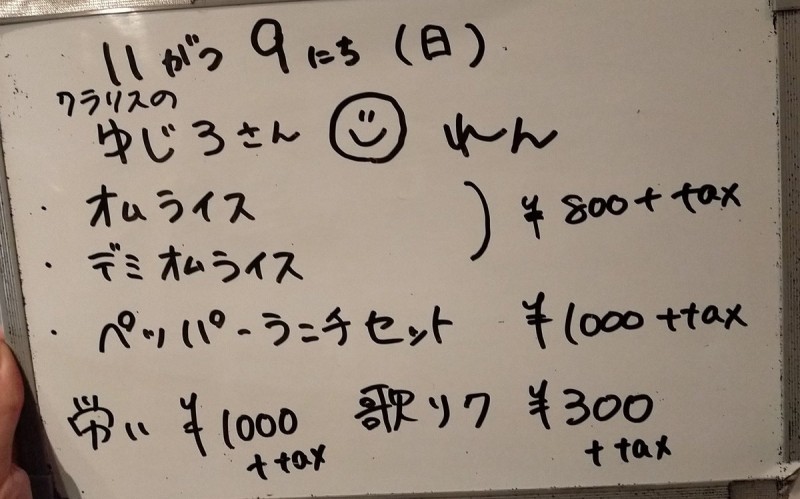 11がつ 9にち (日)
クラリスの
ゆじろさん れん
・オムライス ¥800+tax
・デミオムライス
・ペッパーランチセット ¥1000+tax
労い ¥1000 歌リク ¥300
+tax +tax